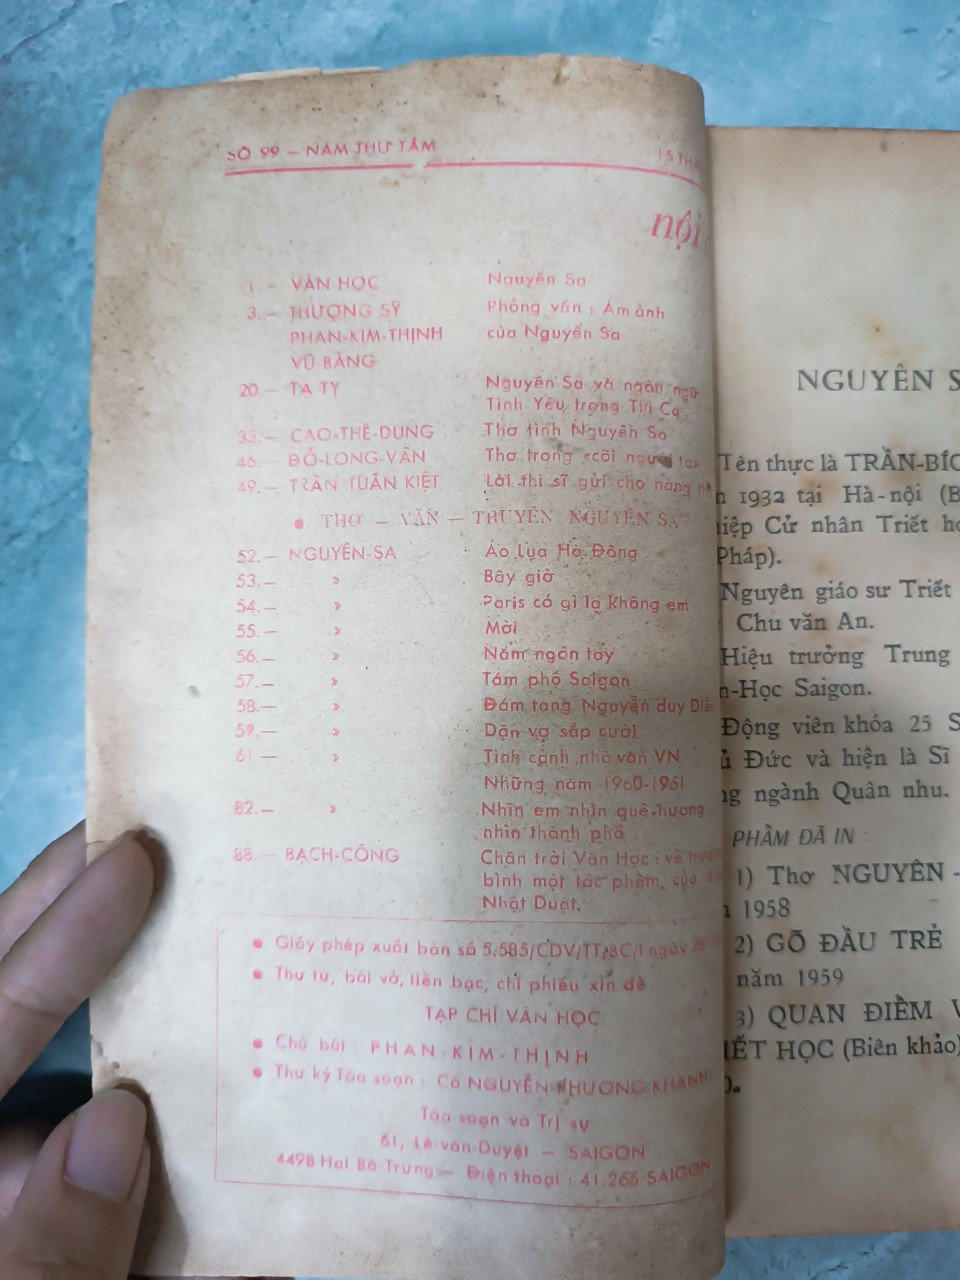 SỐ 99 — NĂM THỨ TÁM
15 THÁ
nội
1 — VĂN-HỌC Nguyên Sa
3.— THƯỢNG SỸ Phỏng vấn : Ám ảnh
PHAN-KIM-THỊNH của Nguyên Sa
VŨ BẰNG
20.— TẠ TỴ Nguyên Sa và ngôn ngữ
Tình Yêu trong Thi Ca
33.— CAO-THẾ-DUNG Thơ tình Nguyên Sa
46.— ĐỖ-LONG-VÂN Thơ trong «cõi người ta»
49.— TRẦN TUẤN KIỆT Lời thi sĩ gửi cho nàng
• THƠ — VĂN — TRUYỆN NGUYÊN SA
52.— NGUYÊN-SA Áo lụa Hà Đông
53.— » Bây giờ
54.— » Paris có gì lạ không em
55.— » Mời
56.— » Năm ngón tay
57.— » Tám phố Saigon
58.— » Đám tang Nguyễn duy Diễn
59.— » Dặn vợ sắp cưới
61 — » Tình cảnh nhà văn VN
Những năm 1960-1961
82.— » Nhìn em nhìn quê-hương
nhìn thành phố
88.— BẠCH-CÔNG Chân trời Văn Học : về
bình một tác phẩm của
Nhật Duật.
• Giấy phép xuất bản số 5.585/CDV/TT/BC/I ngày
• Thư từ, bài vở, tiền bạc, chi phiếu xin đề
TẠP CHÍ VĂN HỌC
• Chủ bút : PHAN-KIM-THỊNH
• Thư ký Tòa soạn : Cô NGUYỄN-PHƯƠNG-KHANH
Tòa soạn và Trị sự
61, Lê-văn-Duyệt — SAIGON
449B Hai Bà-Trưng — Điện thoại : 41.266 SAIGON
NGUYÊN S
Tên thực là TRẦN-BÍC
1932 tại Hà-nội (B
iệp Cử nhân Triết họ
Pháp).
Nguyên giáo sư Triết
Chu văn An.
Hiệu trưởng Trung
n-Học Saigon.
Động viên khóa 25 S
Đức và hiện là Sĩ
ng ngành Quân nhu.
PHẨM ĐÃ IN :
1) Thơ NGUYÊN -
1958
2) GÕ ĐẦU TRẺ
năm 1959
3) QUAN ĐIỂM V
IẾT HỌC (Biên khảo)
0.